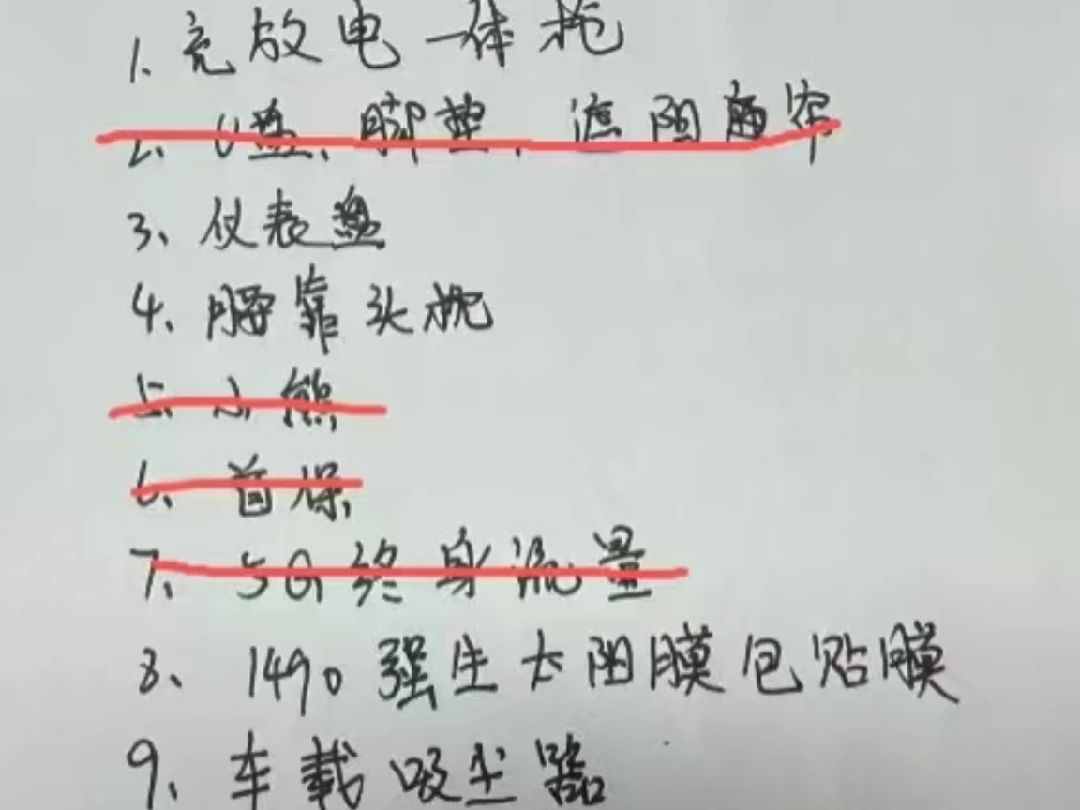 1、充放电一体枪
2、U盘、脚垫、遮阳帘
3、仪表盘
4、腰靠头枕
5、小熊
6、首保
7、5G终身流量
8、1490强生太阳膜包贴膜
9、车载吸尘器